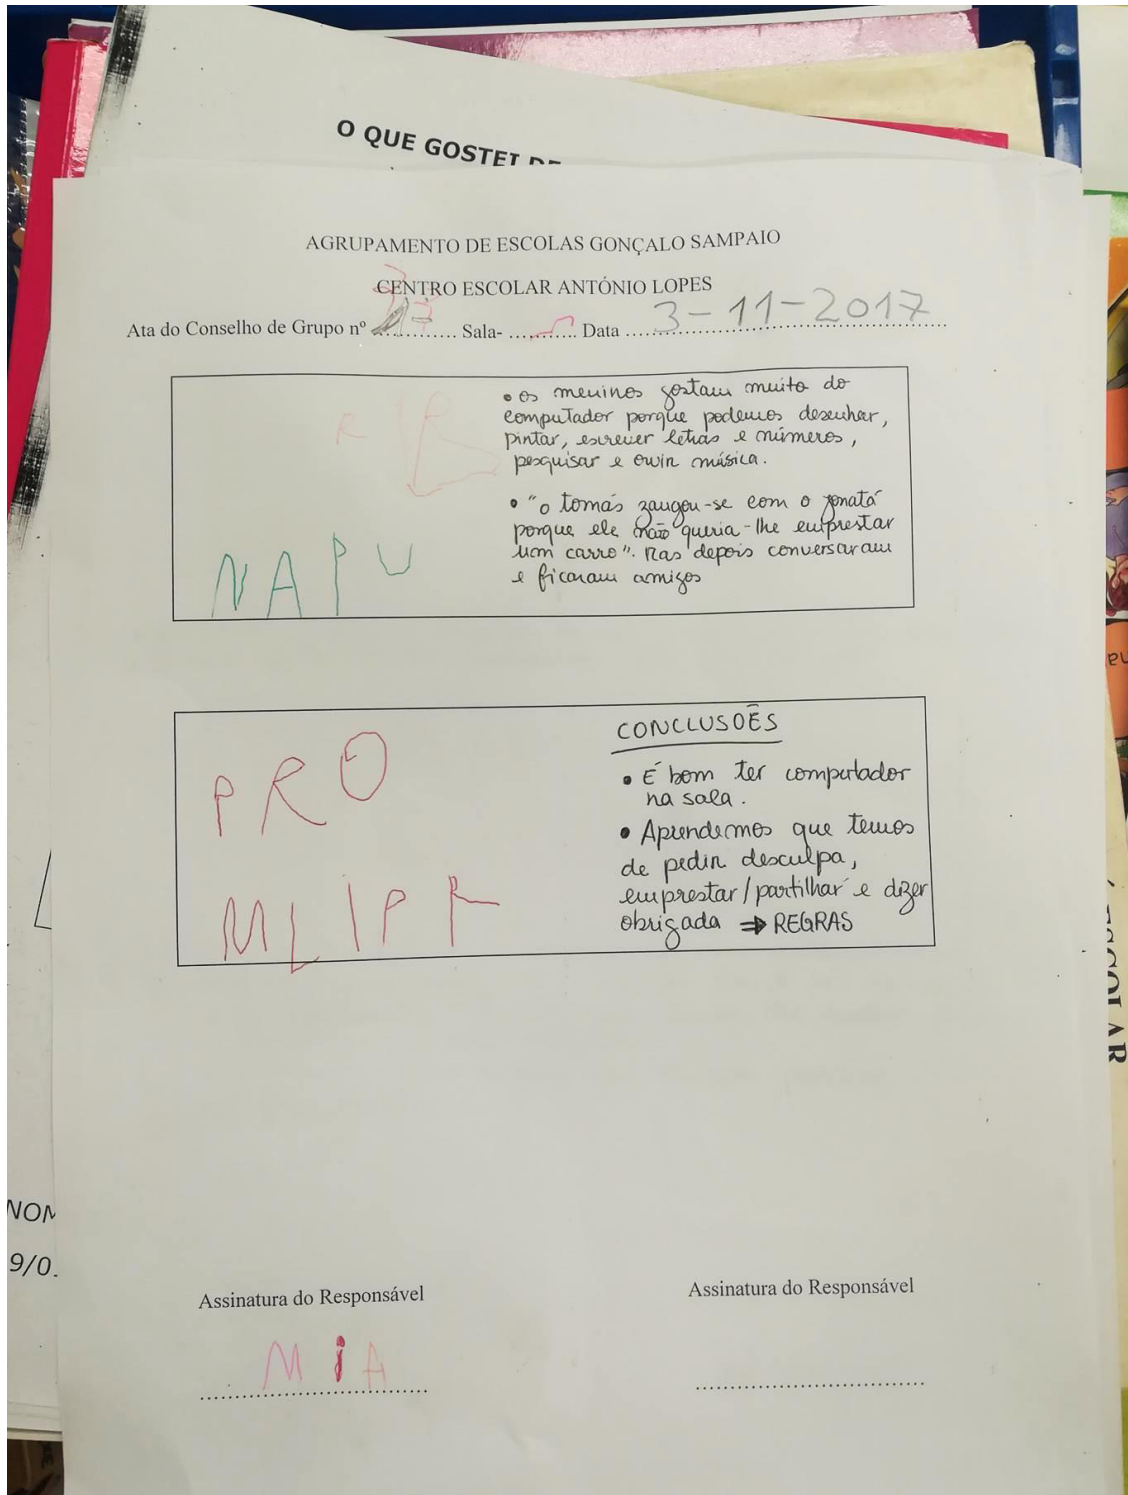 O QUE GOSTEI DE
AGRUPAMENTO DE ESCOLAS GONÇALO SAMPAIO
CENTRO ESCOLAR ANTÓNIO LOPES
Ata do Conselho de Grupo nº ............ Sala- .......... Data 3-11-2017
• os meninos gostam muito do
computador porque podemos desenhar,
pintar, escrever letras e números,
pesquisar e ouvir música.
• "o tomás zangou-se com o jonatá
porque ele não queria-lhe emprestar
um carro". Mas depois conversaram
e ficaram amigos
NAPU
CONCLUSOẼS
• É bom ter computador
na sala.
• Aprendemos que temos
de pedir desculpa,
emprestar/partilhar e dizer
obrigada ⇒ REGRAS
PRO
MLIPR
Assinatura do Responsável
MiA
Assinatura do Responsável
NOM
9/0.